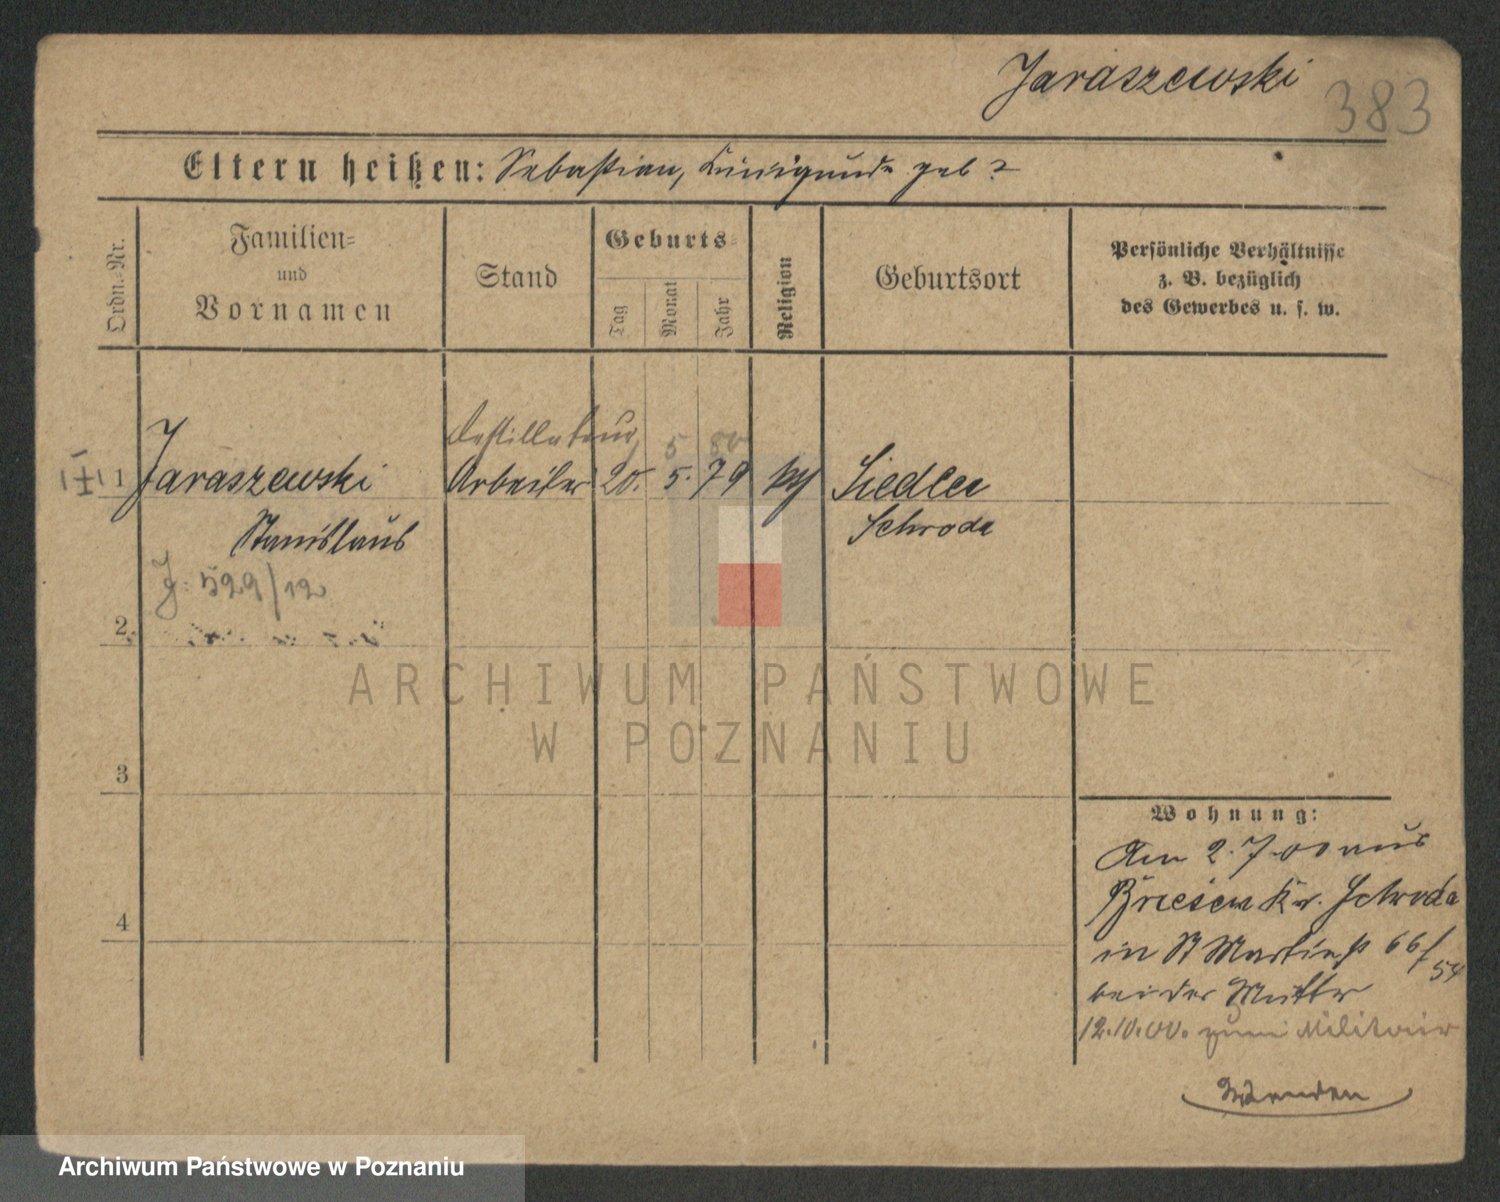 Jaraszewski 383
Eltern heißen: Sebastian, Kunigunde geb ?
Ordn.-Nr.
Familien-
und
Vornamen
Stand
Geburts-
Tag
Monat
Jahr
Religion
Geburtsort
Persönliche Verhältnisse
z. B. bezüglich
des Gewerbes u. s. w.
5 80
1 Jaraszewski Arbeiter 20. 5. 79 Siedlec
Stanislaus Schroda
J. 529/12
2
ARCHIWUM PAŃSTWOWE
W POZNANIU
3
4
Wohnung:
Am 2.7.00 aus
Briesen Kr. Schroda
in St Martinst 66/
54
bei der Mutter
12.10.00. zum Militair
Archiwum Państwowe w Poznaniu